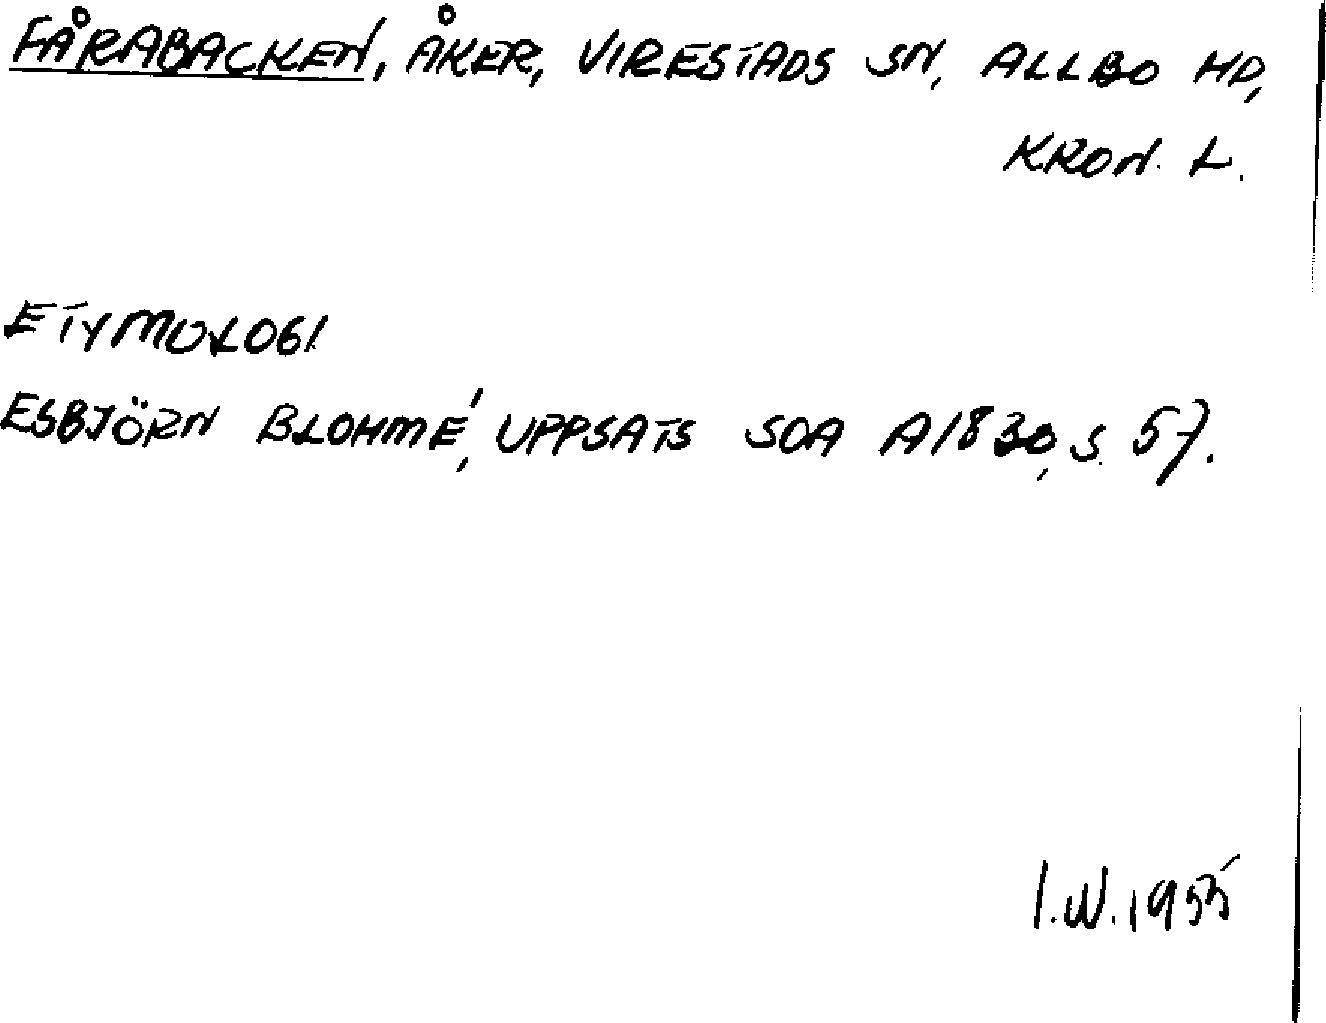 FÅRABACKEN, ÅKER, VIRESTADS SN, ALLBO HD,
KRON. L.
ETYMOLOGI
ESBJÖRN BLOHMÉ, UPPSATS SOA A1830, S. 57.
I.W. 1955